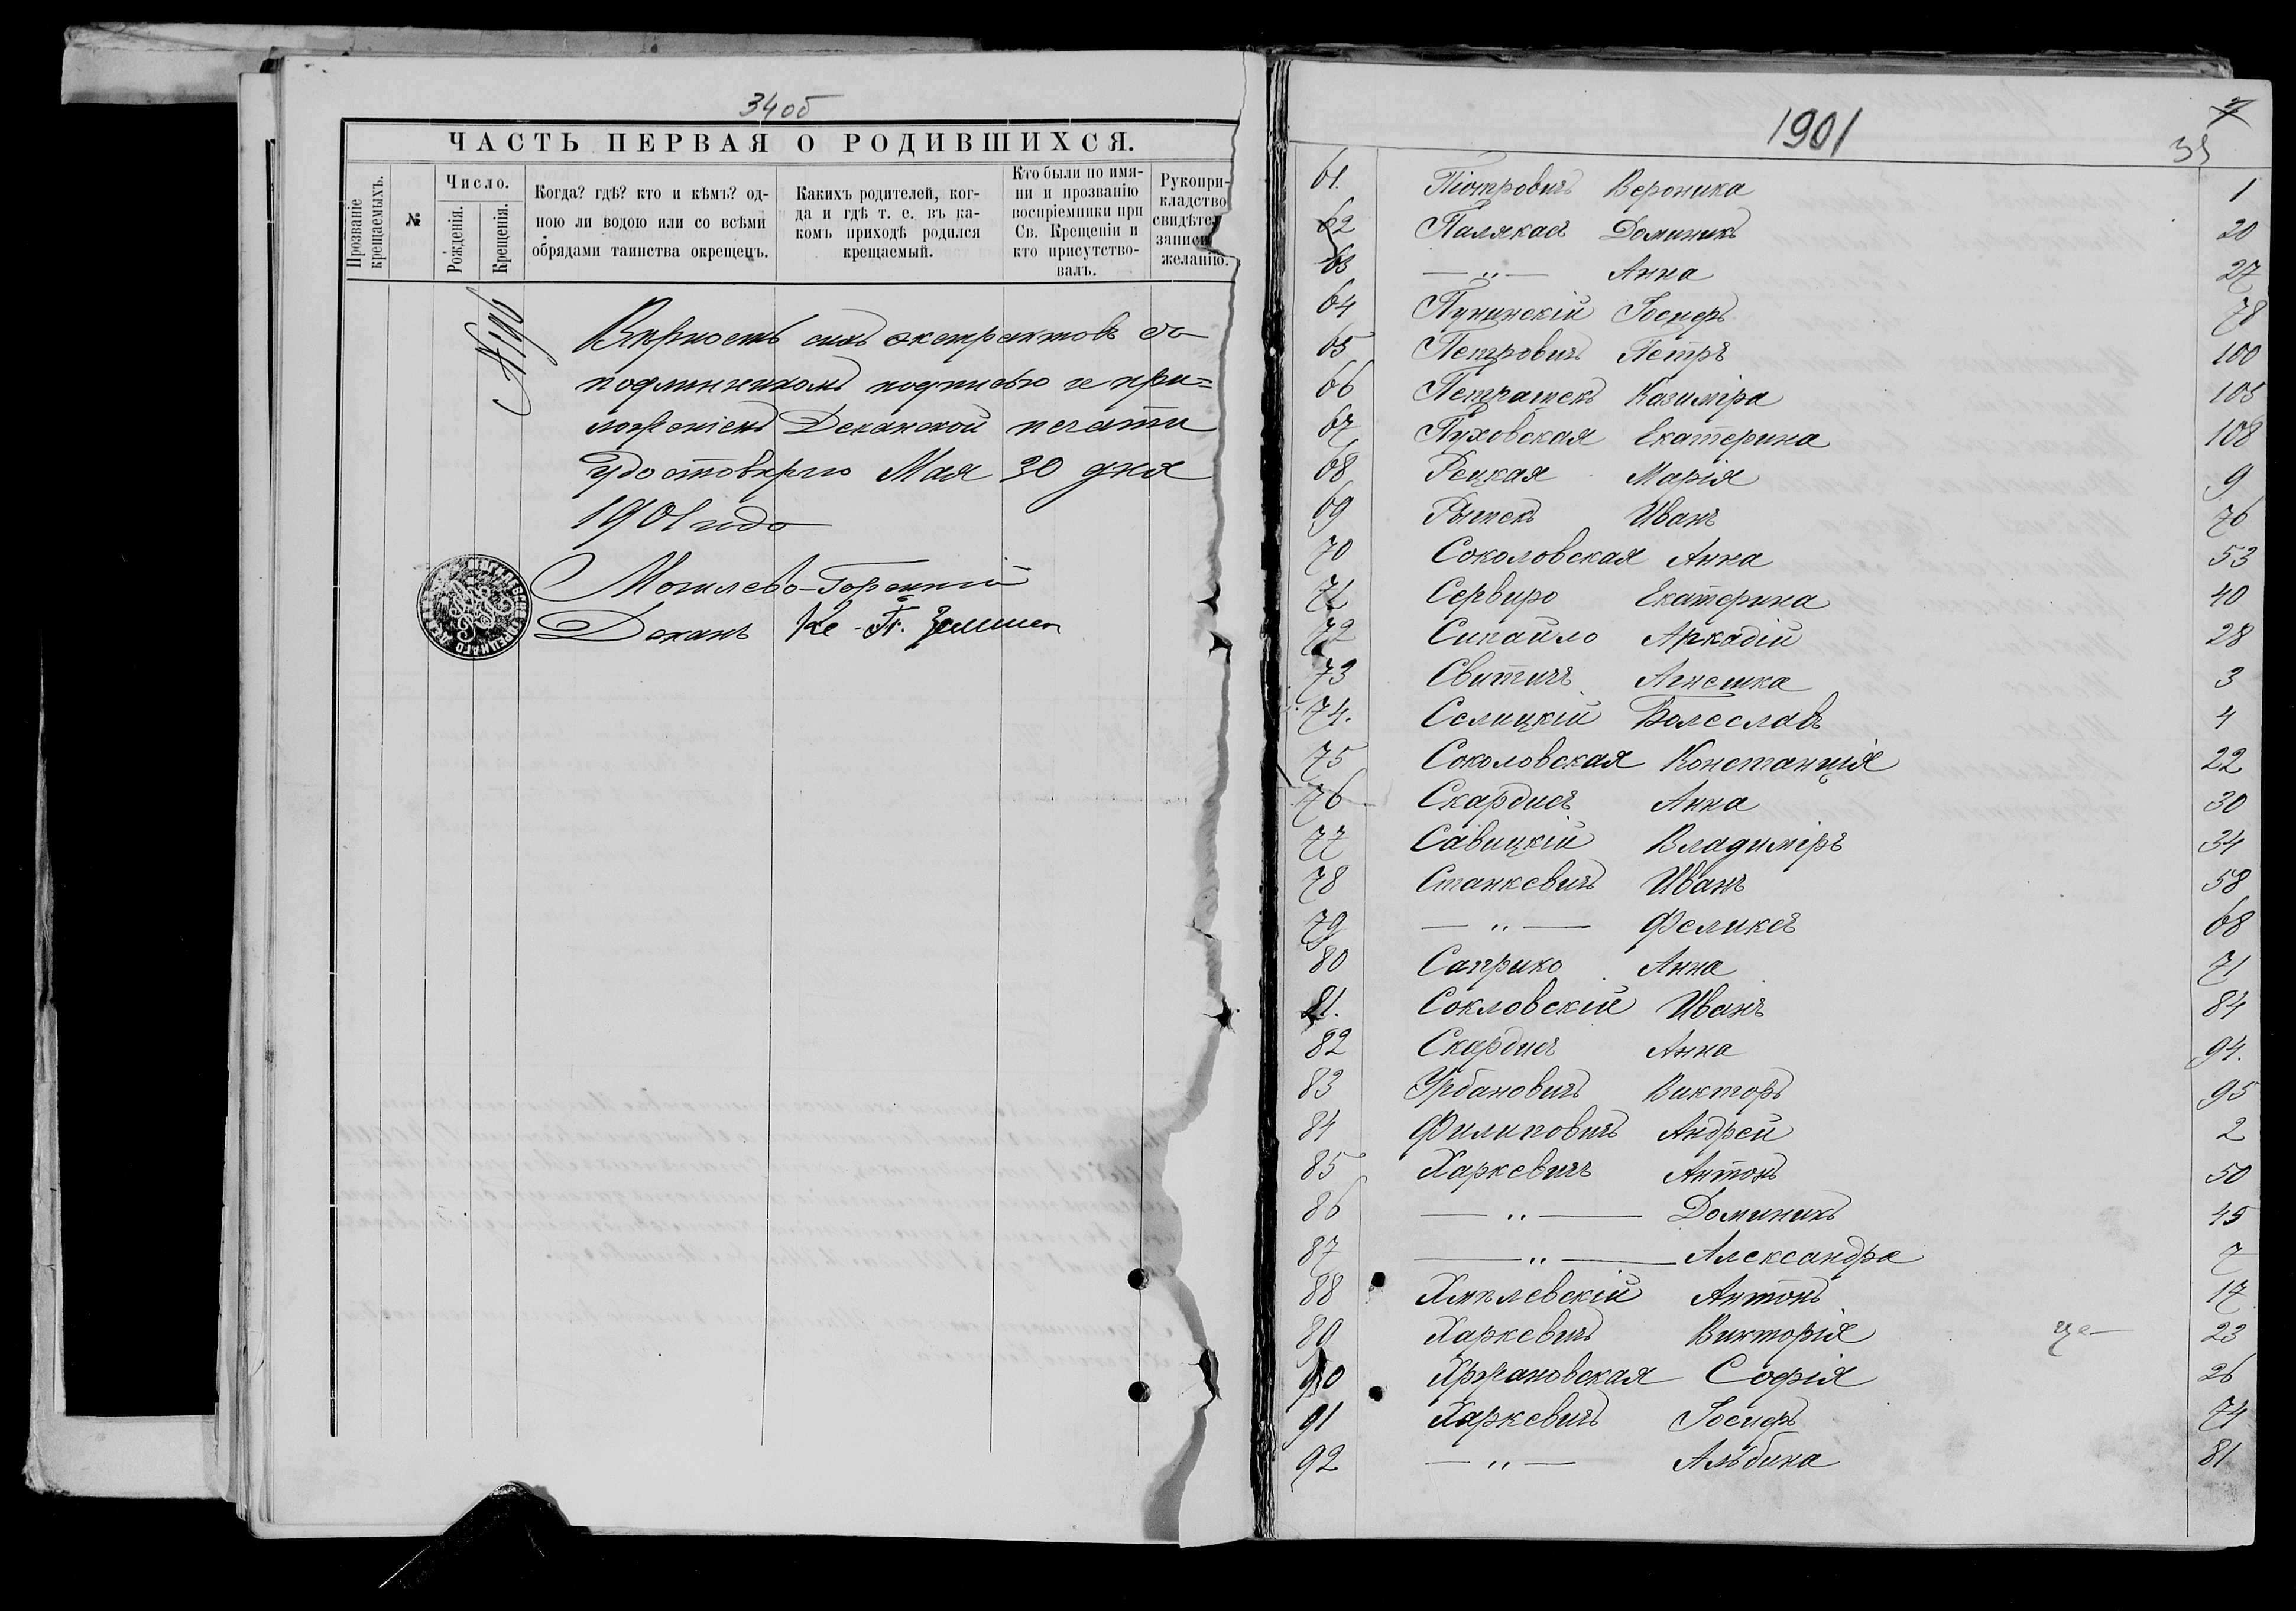 34об
ЧАСТЬ ПЕРВАЯ О РОДИВШИХСЯ.
Прозваніе крещаемыхъ.
№
Число.
Рожденія.
Крещенія.
Когда? гдѣ? кто и кѣмъ? од-
ною ли водою или со всѣми
обрядами таинства окрещенъ.
Какихъ родителей, ког-
да и гдѣ т. е. въ ка-
комъ приходѣ родился
крещаемый.
Кто были по имя-
ни и прозванію
воспріемники при
Св. Крещеніи и
кто присутство-
валъ.
Рукопри-
кладство
свидѣте
записи
желанію.
№196
Вѣрность сихъ экстрактовъ съ
подлинникомъ подписью и при=
ложеніемъ Деканской печати
удостовѣряю Мая 30 дня
1901 года
Могилево-Горецкій
Деканъ Кс. П.
1901
7
35
61. Піотровичъ Вероника 1
62 Палякасъ Доминикъ 20
63 —„— Анна 27
64 Пунинскій Іосифъ 78
65 Петровичъ Петръ 100
66 Петрашекъ Казиміра 105
67 Пуховская Екатерина 108
68 Рецкая Марія 9
69 Рытекъ Иванъ 76
70 Соколовская Анна 53
71 Сервиро Екатерина 40
72 Сипайло Аркадій 28
73 Свитичъ Агнешка 3
74. Селицкій Болеславъ 4
75 Соколовская Констанція 22
76 Скардисъ Анна 30
77 Савицкій Владиміръ 34
78 Станкевичъ Иванъ 58
79 —„— Феликсъ 68
80 Саприко Анна 71
81. Сокловскій Иванъ 84
82 Скардисъ Анна 94.
83 Урбановичъ Викторъ 95
84 Филиповичъ Андрей 2
85 Харкевичъ Антонъ 50
86 —„— Доминикъ 45
87 —„— Александра 7
88 Хмѣлевскій Антонъ 17
89 Харкевичъ Викторія 23
90 Хржановская Софія 26
91 Харкевичъ Іосифъ 74
92 —„— Альбина 81